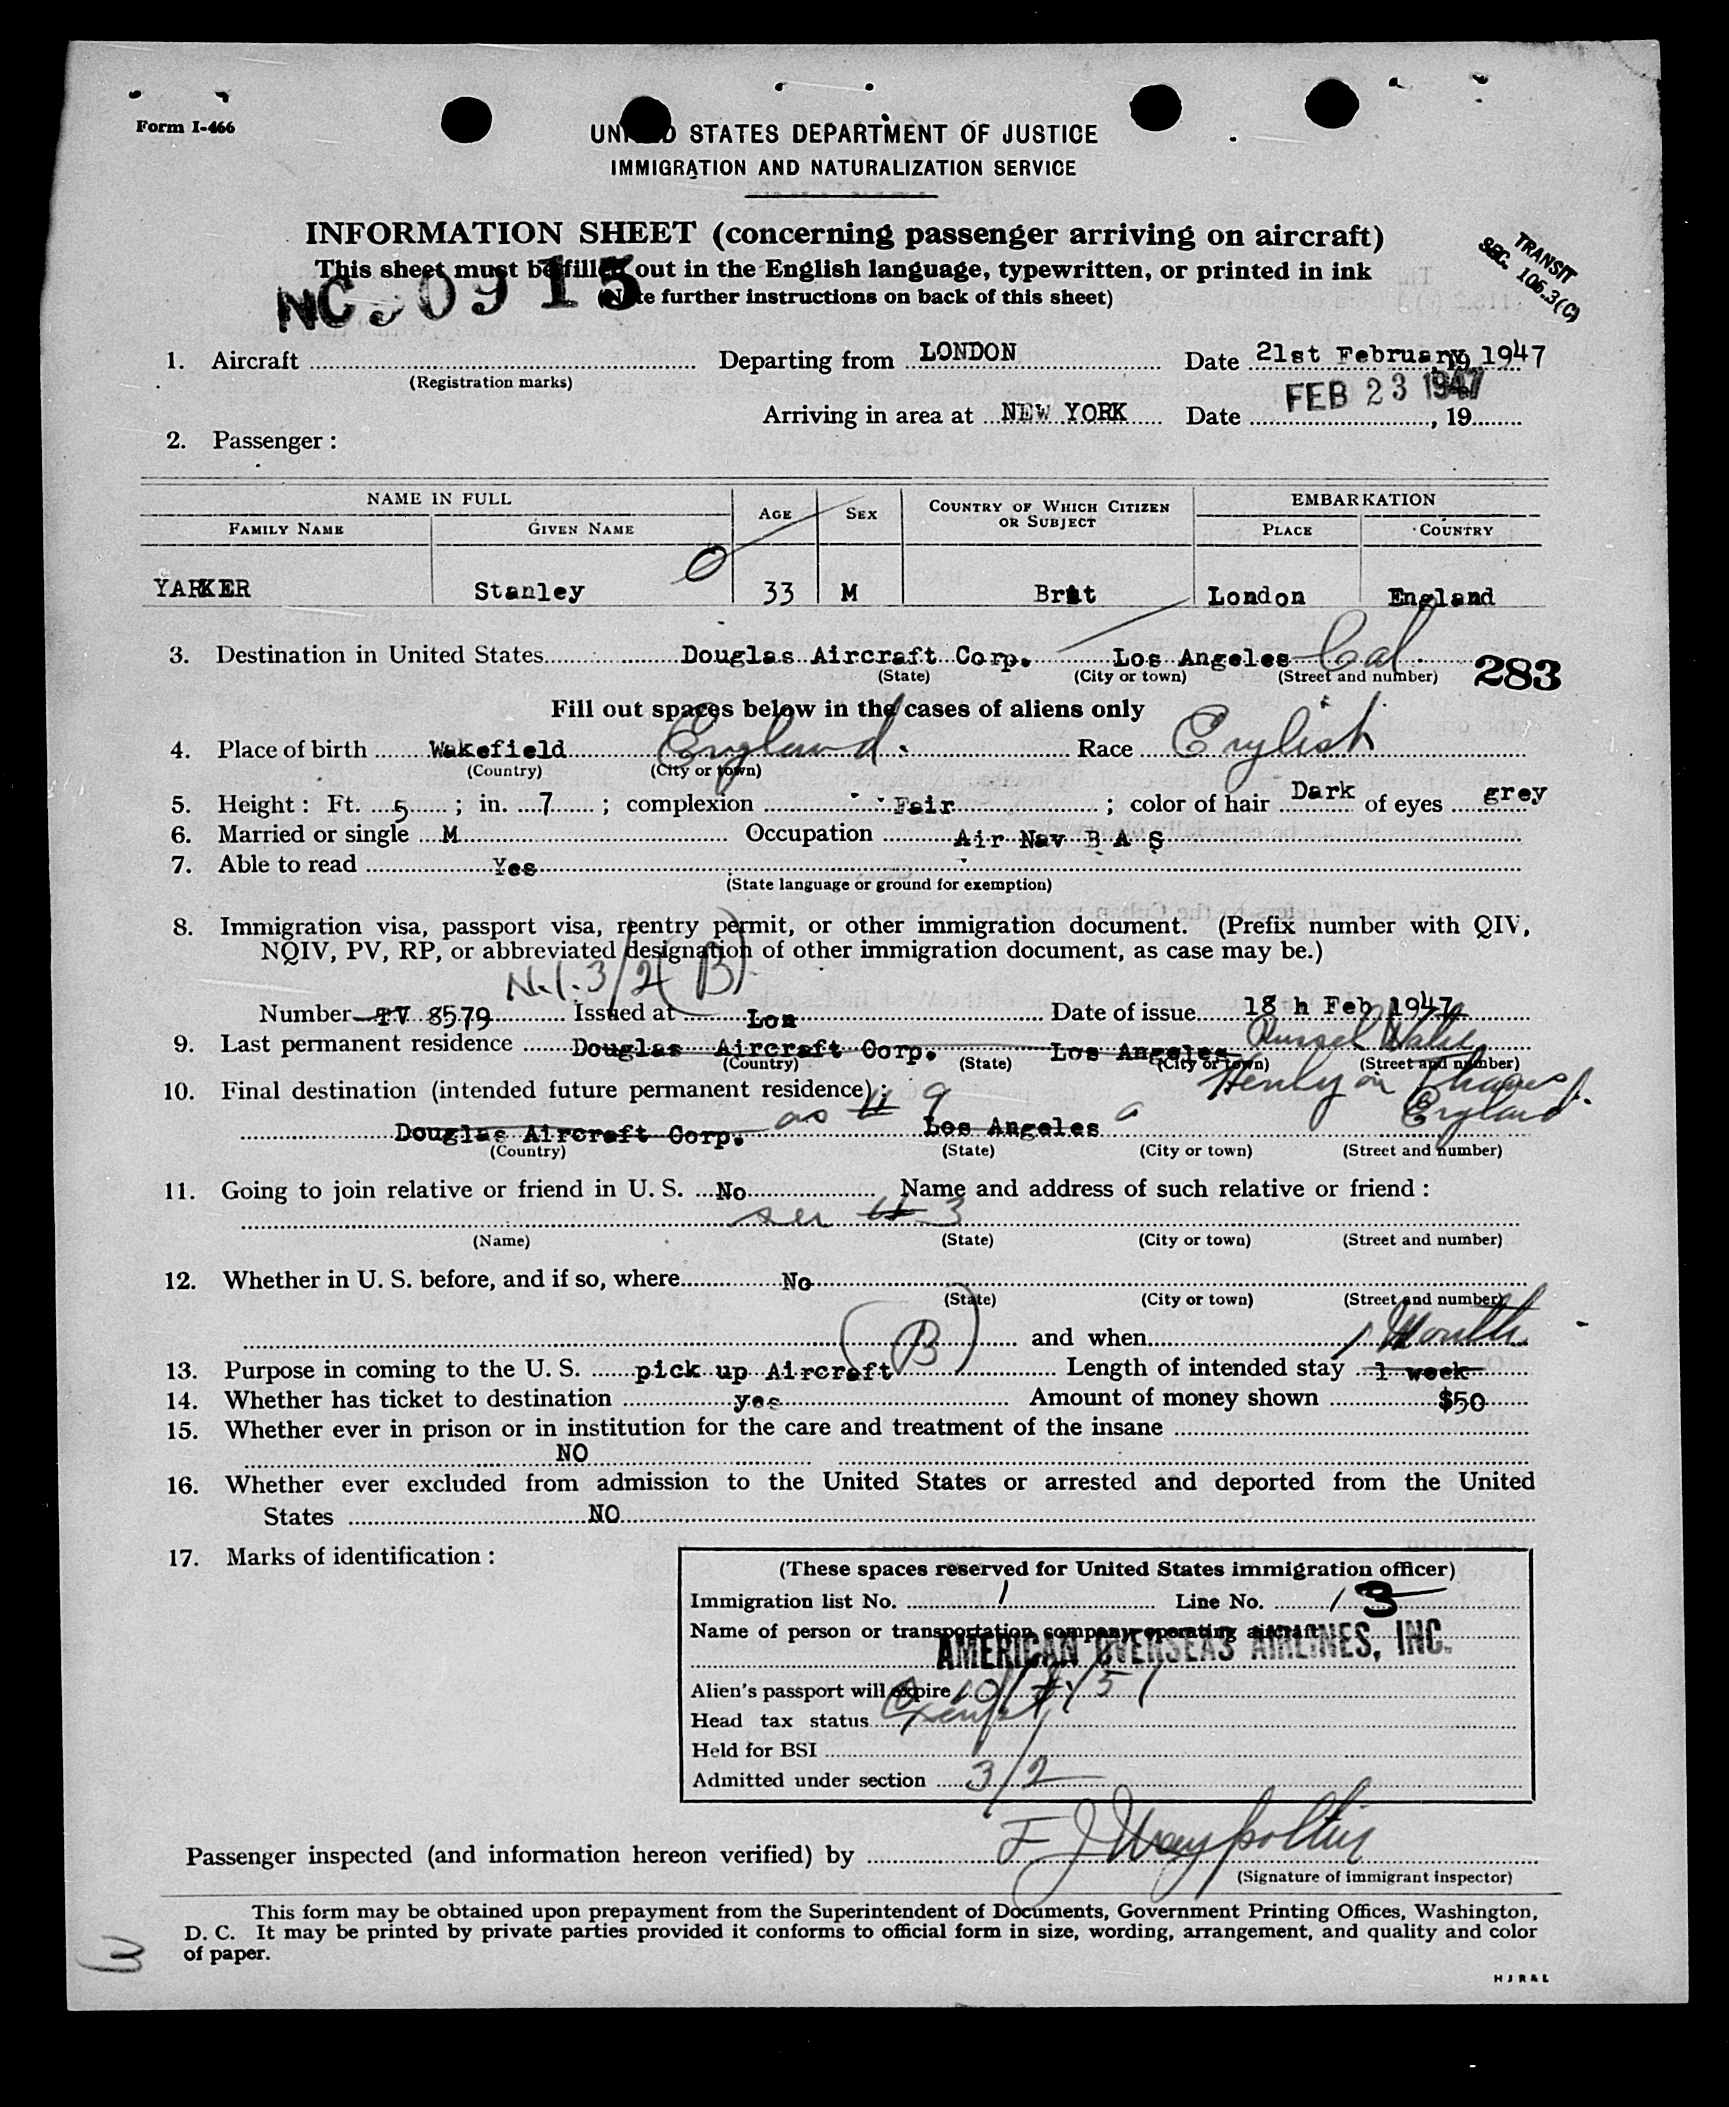 Form I-466
UNITED STATES DEPARTMENT OF JUSTICE
IMMIGRATION AND NATURALIZATION SERVICE
INFORMATION SHEET (concerning passenger arriving on aircraft)
This sheet must be filled out in the English language, typewritten, or printed in ink
(Note further instructions on back of this sheet)
TRANSIT
SEC. 105.3(C)
NC 90915
1. Aircraft Departing from LONDON Date 21st February, 1947
(Registration marks)
Arriving in area at NEW YORK Date FEB 23 1947, 19
2. Passenger :
NAME IN FULL AGE SEX COUNTRY OF WHICH CITIZEN OR SUBJECT EMBARKATION
FAMILY NAME GIVEN NAME PLACE COUNTRY
YARKER Stanley 33 M Brit London England
3. Destination in United States Douglas Aircraft Corp. Los Angeles Cal.
(State) (City or town) (Street and number)
283
Fill out spaces below in the cases of aliens only
4. Place of birth Wakefield England. Race English
(Country) (City or town)
5. Height : Ft. 5 ; in. 7 ; complexion Fair ; color of hair Dark of eyes grey
6. Married or single M Occupation Air Nav B A S
7. Able to read Yes
(State language or ground for exemption)
8. Immigration visa, passport visa, reentry permit, or other immigration document. (Prefix number with QIV,
NQIV, PV, RP, or abbreviated designation of other immigration document, as case may be.)
N.I. 3/2 (B)
Number TV 8579 Issued at Lon Date of issue 18 h Feb 1947
9. Last permanent residence Douglas Aircraft Corp. Los Angeles
(Country) (State) (City or town) (Street and number)
Henly on Thames
England
10. Final destination (intended future permanent residence) :
as # 9
Douglas Aircraft Corp. Los Angeles
(Country) (State) (City or town) (Street and number)
11. Going to join relative or friend in U. S. No Name and address of such relative or friend :
see # 3
(Name) (State) (City or town) (Street and number)
12. Whether in U. S. before, and if so, where No
(State) (City or town) (Street and number)
and when
1 Month
13. Purpose in coming to the U. S. pick up Aircraft (B) Length of intended stay 1 week
14. Whether has ticket to destination yes Amount of money shown $50
15. Whether ever in prison or in institution for the care and treatment of the insane
NO
16. Whether ever excluded from admission to the United States or arrested and deported from the United
States NO
17. Marks of identification :
(These spaces reserved for United States immigration officer)
Immigration list No. 1 Line No. 1 3
Name of person or transportation company operating aircraft
AMERICAN OVERSEAS AIRLINES, INC.
Alien's passport will expire
Head tax status Exempt
Held for BSI
Admitted under section 3/2
Passenger inspected (and information hereon verified) by
(Signature of immigrant inspector)
This form may be obtained upon prepayment from the Superintendent of Documents, Government Printing Offices, Washington,
D. C. It may be printed by private parties provided it conforms to official form in size, wording, arrangement, and quality and color
of paper.
3
H J R & L